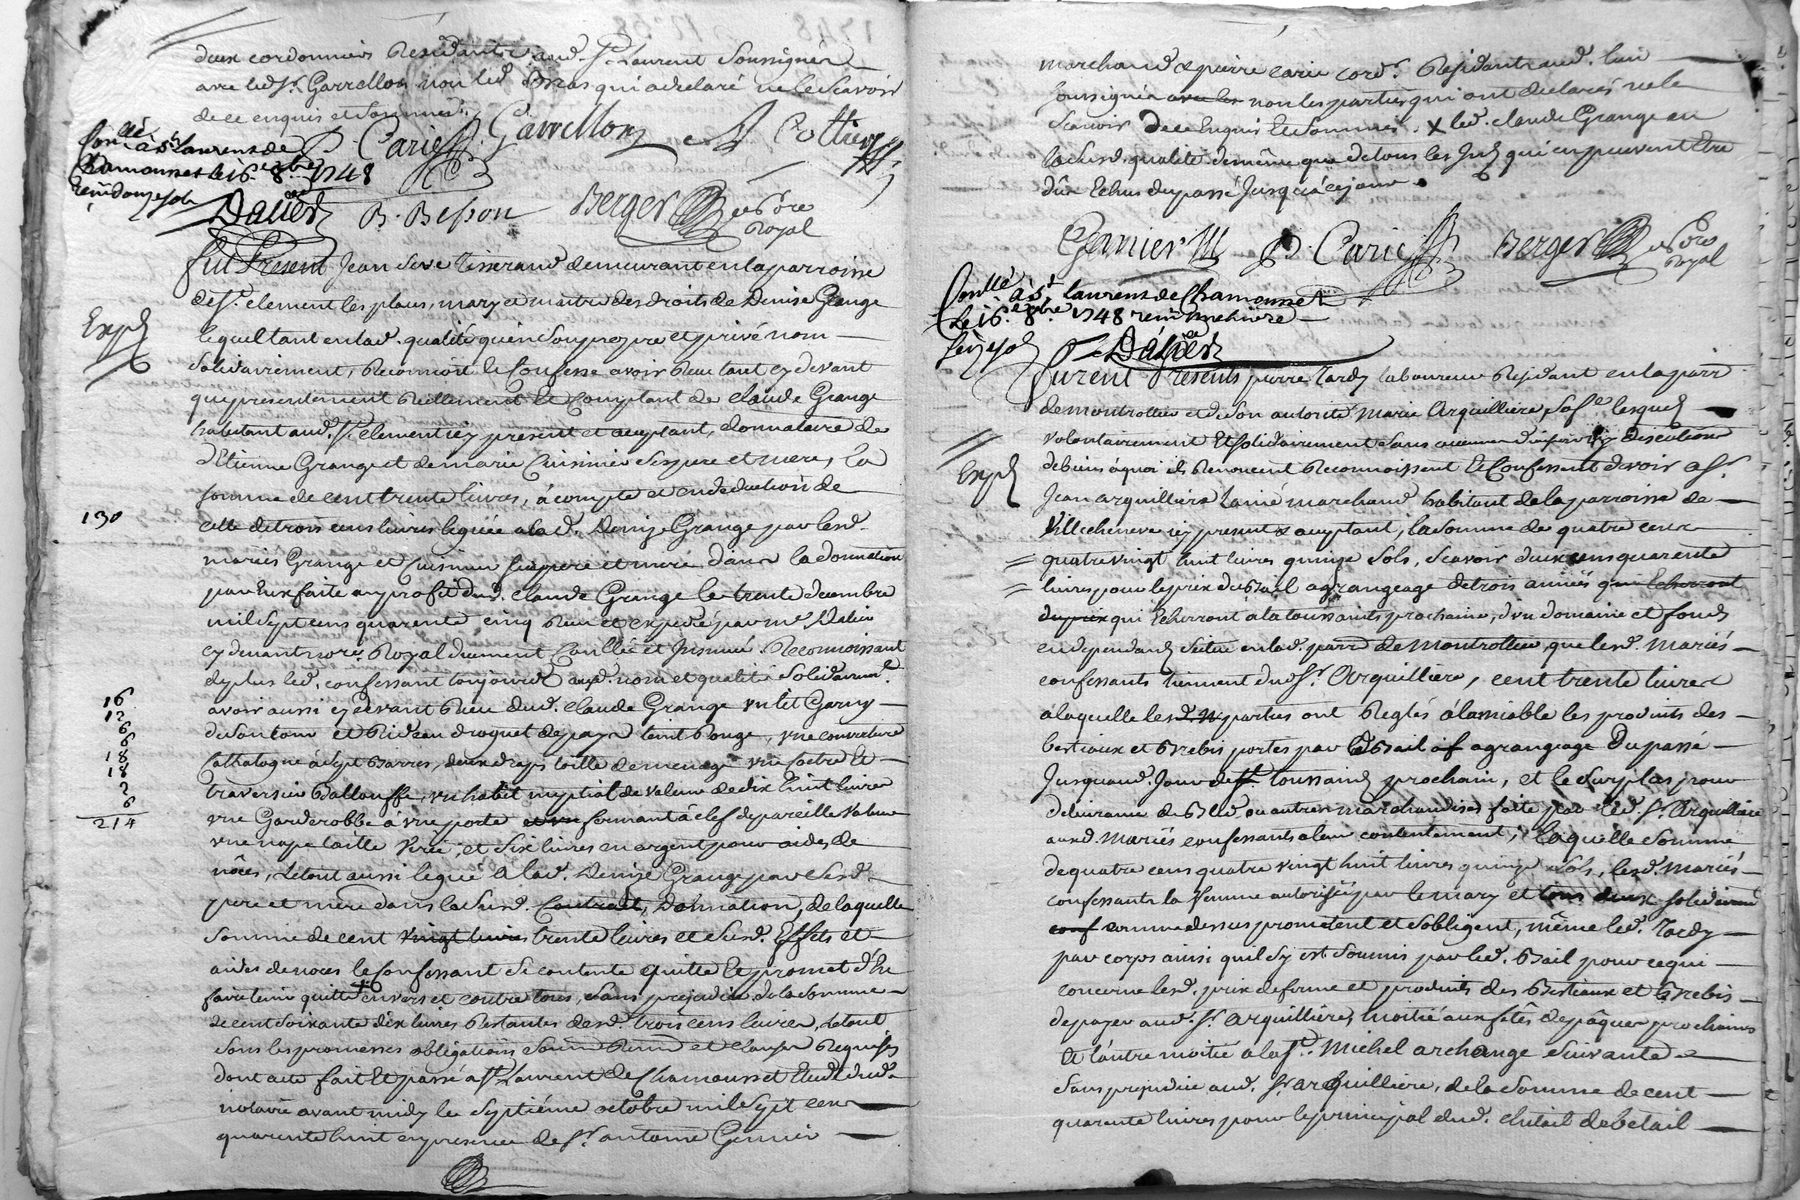 deux cordonniers Residants aud. St. Laurent Soussignés
avec led. Sr. Garrellon non led. qui a declaré ne le Scavoir
de ce enquis et Sommé
P. Carie Garrellon Cottier
Con.llé à St Laurent de
Chamousset le 16 8bre 1748
Dalier B. Besson Berger no.re
Royal
Fut Present Jean tisserand demeurant en la parroisse
de St. clement les places, mary et maitre des droits de Denise Grange
Exp.
lequel tant en lad. qualité qu'en Son propre et privé nom
Solidairement, Reconnoit et Confesse avoir Recu tant cy devant
que presentement Reellement et Comptant de claude Grange
habitant aud. St. clement icy present et acceptant, donnataire de
d'Etienne Grange et de marie Cuisinier Ses pere et mere, La
Somme de cent trente livres, à compte et en deduction de
130
celle de trois cens livres leguée a lad. Denise Grange par lesd.
mariés Grange et Cuisinier Ses pere et mere dans la donnation
par Eux faite au profit dud. claude Grange le trente decembre
mil Sept cens quarente cinq Recu et expedié par me Dalier
cy devant no.re Royal duement Conllée et Insinué. Reconnoissant
de plus led. confessant toujours aud. nom et qualité Solidairem.t
avoir aussi cy devant Recu dud. claude Grange un lit Garny
de Son tour et Rideau droguet de pays teint Rouge, une couverture
Cathalogne à Sept Barres, deux draps toille de menage une &
traversier Ballouffe, un habit nuptial de valeur de dix huit livres
une Garderobbe à une porte fermant à clef de pareille valeur
une nape toille et Six livres en argent pour aides de
16
12
6
6
18
18
2
6
214
nôces, le tout aussi legué a lad. Denise Grange par Sesd.
pere et mere dans la Susd. Contrat, Donnation, de laquelle
Somme de cent vingt livres trente livres et Susd. Effets et
aides de noces le Confessant Se contente quitte et promet d'en
faire tenir quitte envers et contre tous, Sans prejudice de la Somme
de cent Soixante dix livres Restantes desd. trois cens livres, le tout
Sous les promesses obligations Soum. Renon. et clauses Requises
dont acte fait et passé a St. Laurent de Chamousset Etude dud.
notaire avant midy le Septiéme octobre mil Sept cens
quarente huit en presence de Sr. antoine Garnier
marchand & pierre carie cord.r Residants aud. lieu
Soussignés avec les non les parties qui ont declarés ne le
Scavoir de ce Enquis et Sommés. X led. claude Grange en
la Susd. qualité de même que de tous les Int. qui en peuvent Etre
dûs Echus du passé Jusqu'à ce jour
Garnier P. Carie Berger no.re
Royal
Conllé à St Laurent de Chamousset
le 16 8bre 1748
Dalier
Furent Presents pierre Tardy laboureur Residant en la parr.
de montrottier et de Son autorité Marie Arquilliere Sa fe. lesquels
volontairement et Solidairement Sans aucune division ny discution
Exp.
de biens à quoi ils Renoncent Reconnoissent et Confessent devoir a Sr.
Jean arquilliere Lainé marchand habitant de la parroisse de
Villecheneve icy present & acceptant, la Somme de quatre cens
quatre vingt huit livres quinze Sols, Scavoir deux cens quarente
livres pour le prix du Bail a grangeage de trois années que Echerront
du prix qui Echerront à la toussaints prochaine, d'un domaine et fonds
en dependants Situé en lad. parr. de Montrottier, que lesd. Mariés
confessants tiennent dud. Sr. Arquilliere, cent trente livres
à laquelle lesd. parties ont Reglés à l'amiable les produits des
bestiaux et Brebis portés par led. Bail à grangeage Du passé
Jusquaud. Jour de toussaints prochain, et le Surplus pour
délivrance de Bled ou autres marchandises faite par led. Sr. Arquilliere
aud. Mariés confessants a leur contentement, laquelle Somme
de quatre cens quatre vingt huit livres quinze Sols, lesd. Mariés
confessants la femme autorisée par le mary et tous deux Solidairem.t
conf comme dessus promettent et s'obligent, même led. Tardy
par corps ainsi qu'il S'y est Soumis par led. Bail pour ce qui
concerne lesd. prix de ferme et produits des Bestiaux et Brebis
de payer aud. Sr. Arquilliere, moitié aux fêtes de pâques prochaines
et l'autre moitié a la St. Michel archange Suivante
Sans prejudice aud. Sr. arquilliere, de la Somme de cent
quarente livres pour le principal dud. cheptail de betail